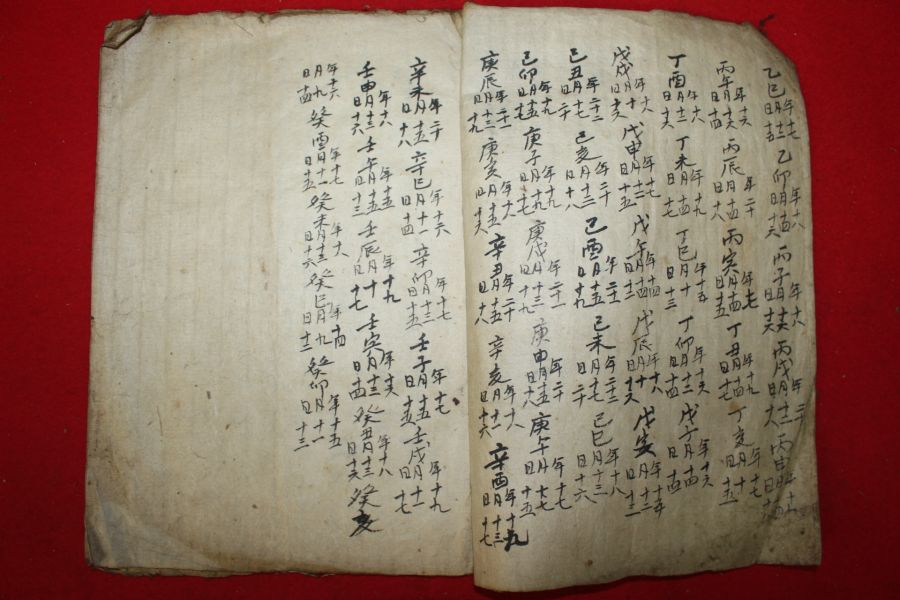 乙巳年十七月十三日十五乙卯年十八月十五日十六丙子年十八月十六日十六丙戌年二十月十二日十八丙申
丙午年十六月十六日十五丙辰年二十月十四日十八丙寅年十七月十四日十五丁丑年十九月十四日十七丁亥年十七月十日十五
丁酉年十八月十二日十六丁未年十九月十四日十七丁巳年十五月十日十三丁卯年十六月十二日十四戊子年十六月十四日十四
戊戌年十八月十日十六戊申年十七月十二日十五戊午年十四月十四日十三戊辰年十八月十日十六戊寅年十五月十二日十三
己丑年二十二月十七日二十己亥年二十月十三日十八己酉年二十一月十五日十九己未年二十二月十七日二十己巳年十八月十三日十六
己卯年十九月十五日十七庚子年十九月十九日十七庚戌年二十一月十三日十九庚申年二十月十五日十八庚午年十七月十七日十五
庚辰年二十一月十三日十九庚寅年十八月十五日十六辛丑年二十月十五日十八辛亥年十八月十一日十六辛酉年十九月十三日十七
辛未年二十月十五日十八辛巳年十六月十一日十四辛卯年十七月十三日十五壬子年十七月十五日十五壬戌年十九月十一日十七
壬申年十八月十三日十六壬午年十五月十五日十三壬辰年十九月十日十七壬寅年十六月十三日十四癸丑年十八月十三日十六癸亥
年十六月九日十四癸酉年十七月十一日十五癸未年十八月十三日十六癸巳年十四月九日十二癸卯年十五月十一日十三